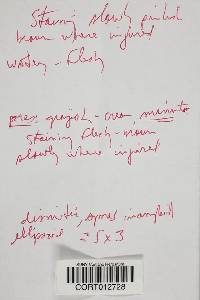 Staining slowly pinkish
brown where injured
watery - flesh
pores grayish - cream, minute
staining flesh - brown
slowly where injured
dimitic, spores
ellipsoid = 5 x 3
CORT012728